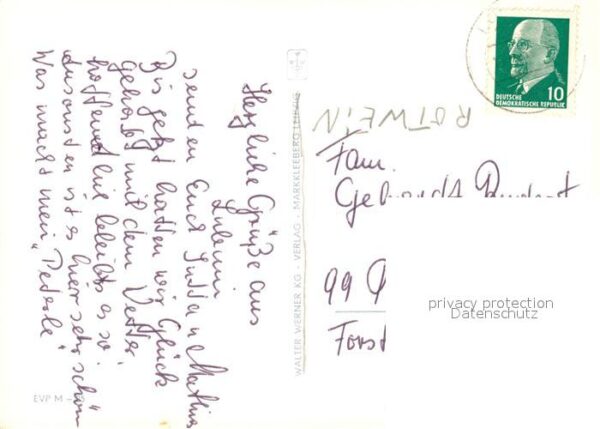 Herzliche Grüße aus
Lubmin
senden Euch Jutta u. Mathias
Bis jetzt hatten wir Glück
gehabt mit dem Wetter
hoffentlich bleibt es so
ansonsten ist es hier sehr schön
Was macht mein „Peterle“
EVP M
WALTER WERNER KG · VERLAG · MARKKLEEBERG LEIPZIG
DEUTSCHE
DEMOKRATISCHE REPUBLIK
10
ROTWEIN
Fam.
99
Forst
privacy protection
Datenschutz